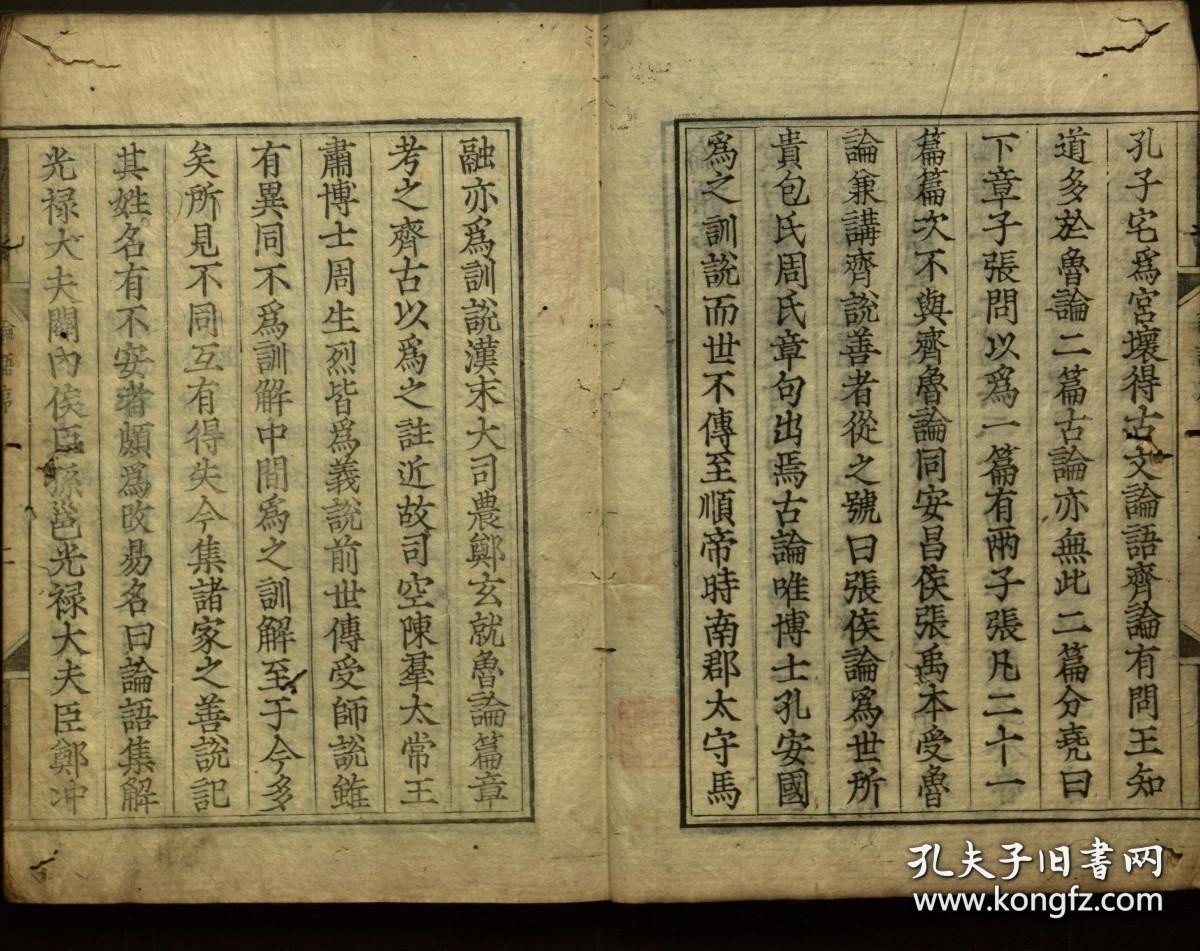 孔子宅爲宮壞得古文論語齊論有問王知
道多於魯論二篇古論亦無此二篇分堯曰
下章子張問以爲一篇有兩子張凡二十一
篇篇次不與齊魯論同安昌侯張禹本受魯
論兼講齊說善者從之號曰張侯論爲世所
貴包氏周氏章句出焉古論唯博士孔安國
爲之訓說而世不傳至順帝時南郡太守馬
融亦爲訓說漢末大司農鄭玄就魯論篇章
考之齊古以爲之註近故司空陳羣太常王
肅博士周生烈皆爲義說前世傳受師說雖
有異同不爲訓解中間爲之訓解至于今多
矣所見不同互有得失今集諸家之善說記
其姓名有不安者頗爲改易名曰論語集解
光禄大夫關內侯臣孫邕光禄大夫臣鄭冲
論語序
二
孔夫子旧书网
www.kongfz.com